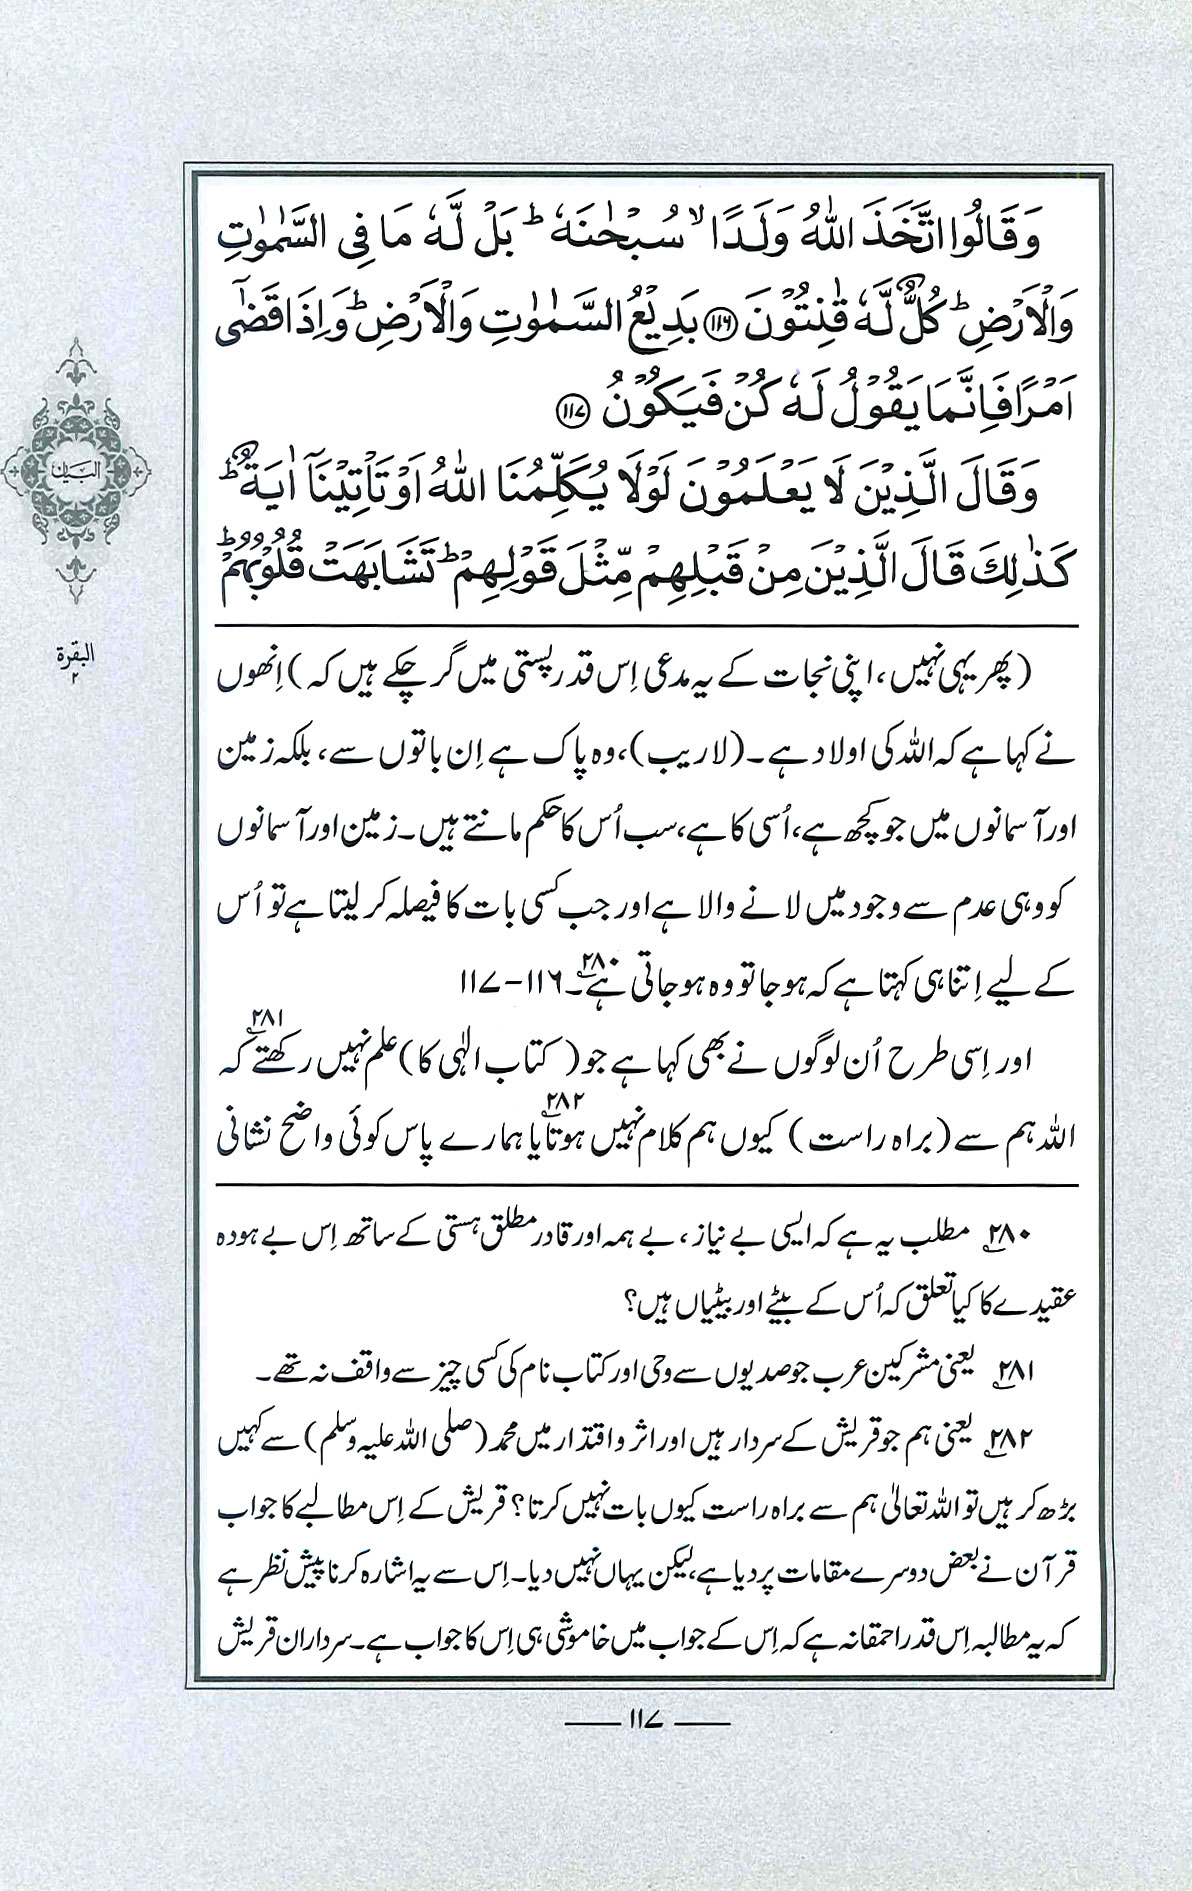 وَقَالُوا اتَّخَذَ اللّٰهُ وَلَدًا ۙ سُبْحٰنَهٗ ؕ بَلْ لَّهٗ مَا فِی السَّمٰوٰتِ
وَالْاَرْضِ ؕ كُلٌّ لَّهٗ قٰنِتُوْنَ ﴿۱۱۶﴾ بَدِیْعُ السَّمٰوٰتِ وَالْاَرْضِ ؕ وَاِذَا قَضٰۤی
اَمْرًا فَاِنَّمَا یَقُوْلُ لَهٗ كُنْ فَیَكُوْنُ ﴿۱۱۷﴾
وَقَالَ الَّذِیْنَ لَا یَعْلَمُوْنَ لَوْلَا یُكَلِّمُنَا اللّٰهُ اَوْ تَاْتِیْنَاۤ اٰیَةٌ ؕ
كَذٰلِكَ قَالَ الَّذِیْنَ مِنْ قَبْلِهِمْ مِّثْلَ قَوْلِهِمْ ؕ تَشَابَهَتْ قُلُوْبُهُمْ ؕ
البیان
البقرة
۲
(پھر یہی نہیں، اپنی نجات کے یہ مدعی اِس قدر پستی میں گر چکے ہیں کہ) اِنھوں
نے کہا ہے کہ اللہ کی اولاد ہے۔ (لاریب)، وہ پاک ہے اِن باتوں سے، بلکہ زمین
اور آسمانوں میں جو کچھ ہے، اُسی کا ہے، سب اُس کا حکم مانتے ہیں۔ زمین اور آسمانوں
کو وہی عدم سے وجود میں لانے والا ہے اور جب کسی بات کا فیصلہ کر لیتا ہے تو اُس
کے لیے اِتنا ہی کہتا ہے کہ ہو جا تو وہ ہو جاتی ہے۔۲۸۰ ۱۱۶-۱۱۷
اور اِسی طرح اُن لوگوں نے بھی کہا ہے جو (کتاب الٰہی کا) علم نہیں رکھتے۲۸۱ کہ
اللہ ہم سے (براہ راست) کیوں ہم کلام نہیں ہوتا۲۸۲ یا ہمارے پاس کوئی واضح نشانی
۲۸۰ مطلب یہ ہے کہ ایسی بے نیاز، بے ہمہ اور قادر مطلق ہستی کے ساتھ اِس بے ہودہ
عقیدے کا کیا تعلق کہ اُس کے بیٹے اور بیٹیاں ہیں؟
۲۸۱ یعنی مشرکین عرب جو صدیوں سے وحی اور کتاب نام کی کسی چیز سے واقف نہ تھے۔
۲۸۲ یعنی ہم جو قریش کے سردار ہیں اور اثر و اقتدار میں محمد (صلی اللہ علیہ وسلم) سے کہیں
بڑھ کر ہیں تو اللہ تعالیٰ ہم سے براہ راست کیوں بات نہیں کرتا؟ قریش کے اِس مطالبے کا جواب
قرآن نے بعض دوسرے مقامات پر دیا ہے، لیکن یہاں نہیں دیا۔ اِس سے یہ اشارہ کرنا پیش نظر ہے
کہ یہ مطالبہ اِس قدر احمقانہ ہے کہ اِس کے جواب میں خاموشی ہی اِس کا جواب ہے۔ سرداران قریش
۱۱۷